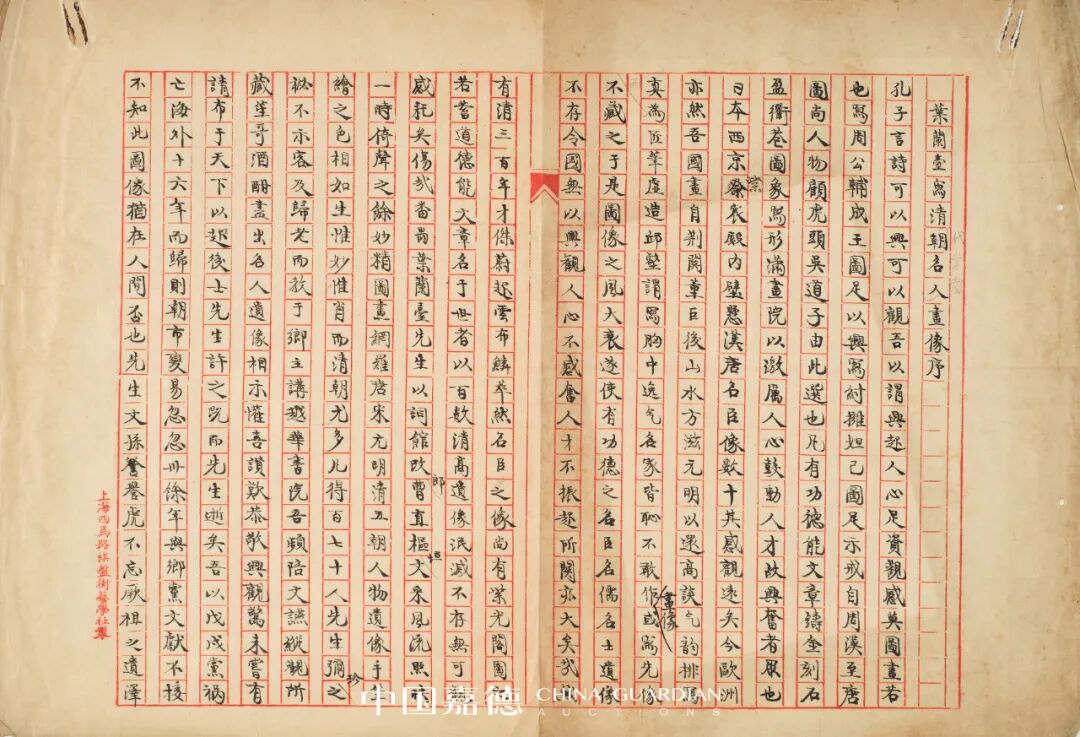 葉蘭臺寫清朝名人畫像序
孔子言詩可以興可以觀吾以謂興起人心足資觀感莫圖畫若
也寫周公輔成王圖足以興寫紂擁妲己圖足示戒自周漢至唐
圖尚人物顧虎頭吳道子由此選也凡有功德能文章鑄金刻石
盈衢巷圖象寫形滿畫院以激厲人心鼓動人才故興奮者眾也
日本西京紫宸殿內壁懸漢唐名臣像數十其感觀遠矣今歐洲
亦然吾國畫自荆關董巨後山水方滋元明以還高談气韵排寫
真為匠筆虛造邱壑謂寫胸中逸气名家皆恥不敢作畫像或寫先像
不藏之于是圖像之風大衰遂使有功德之名臣名儒名士遺像
不存令國無以興觀人心不感奮人才不振起所關亦大矣哉
有清三百年才傑蔚起雲布鱗萃然名臣之像尚有紫光閣圖
若蓄道德能文章名于世者以百數清高遺像泯滅不存無可
感耗矣傷哉番禺葉蘭臺先生以詞館改曹郎直樞垣文采風流照
一時倚聲之餘妙精圖畫網羅唐宋元明清五朝人物遺像手
繪之色相如生惟妙惟肖而清朝尤多凡得百七十人先生彌珍之
秘不示客及歸老而教于鄉主講越華書院吾頻陪文讌縱觀所
藏筆哥酒酣盡出名人遺像相示懽喜讚歎恭敬興觀驚未嘗有
請布于天下以起後士先生許之既而先生逝矣吾以戊戌黨禍
亡海外十六年而歸則朝市變易忽忽卅餘年與鄉黨文獻不接
不知此圖像猶在人間否也先生文孫譽虎不忘厥祖之遺澤
上海四馬路棋盤街藝學社製
中国嘉德 CHINA GUARDIAN
AUCTIONS